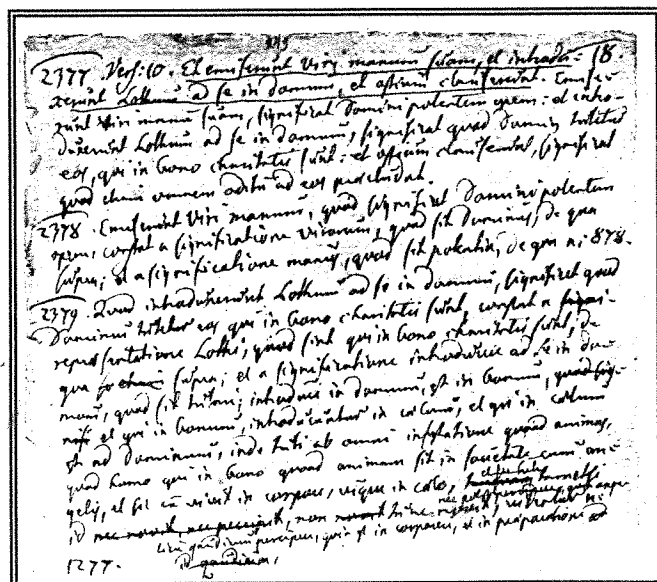 2377. Vers: 10. Et emiserunt viri manum suam, et introdu= 18.
xerunt Lothum ad se in domum, et ostium clauserunt. Emise=
runt viri manum suam, significat Domini potentem opem: et intro=
duxerunt Lothum ad se in domum, significat quod Dominus tutetur
eos, qui in bono charitatis sunt: et ostium clauserunt, significat
quod etiam omnem aditum ad eos praecludat.
2378. Emiserunt viri manum, quod significet Domini potentem
opem, constat a significatione virorum, quod sit Dominus, de qua
supra; et a significatione manus, quod sit potentia, de qua n: 878.
2379. Quod introduxerunt Lothum ad se in domum, significet quod
Dominus tutetur eos qui in bono charitatis sunt, constat a
repraesentatione Lothi, quod sint qui in bono charitatis sunt, de
qua supra; et a significatione introducere ad se in do=
mum, quod sit tutari; introduci in domum, est in bonum,
et qui in bonum, introducuntur in coelum, et qui in coelum
ad Dominum, inde tuti ab omni infestatione quoad animas,
quod homo qui in bono quoad animam sit in societate cum an=
gelis, et sic cum vivit in corpore, usque in coelo, tametsi
id non nec
gaudium percipere, quia est in corpore, et in praeparatione ad
1277. id gaudium,